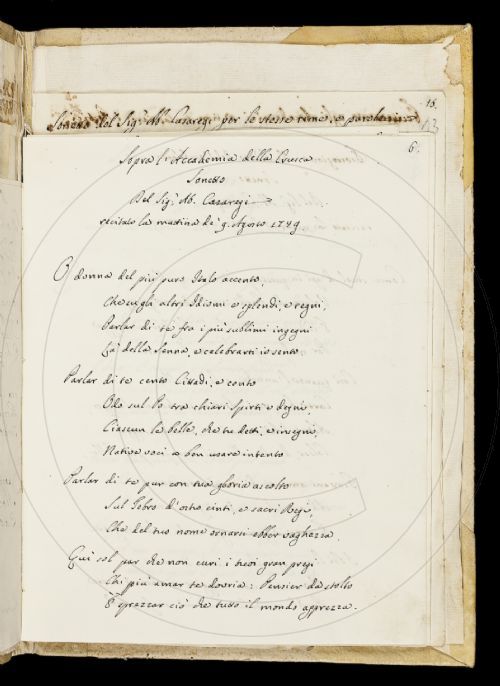 15.
Sonetto del Sig.r Ab. Casaregi per le stesse rime, e parole
13
6.
Sopra l'Accademia della Crusca
Sonetto
Del Sig.r Ab. Casaregi
recitato la mattina de' 9. Agosto 1749
O donna del più puro Italo accento,
Che su gli altri Idiomi e splendi, e regni,
Parlar di te fra i più sublimi ingegni
Là della Senna, e celebrarti io sento
Parlar di te cento Cittadi, e cento
Odo sul Po tra chiari Spirti e degni,
Ciascun le belle, che tu detti, e insegni,
Native voci a ben usare intento
Parlar di te pur con tua gloria ascolto
Sul Tebro d'ostro cinti, e sacri Regi,
Che del tuo nome ornarsi ebber vaghezza.
Qui sol par che non curi i tuoi gran pregi
Chi più amar te dovria: Pensier da stolto
È sprezzar ciò che tutto il mondo apprezza.